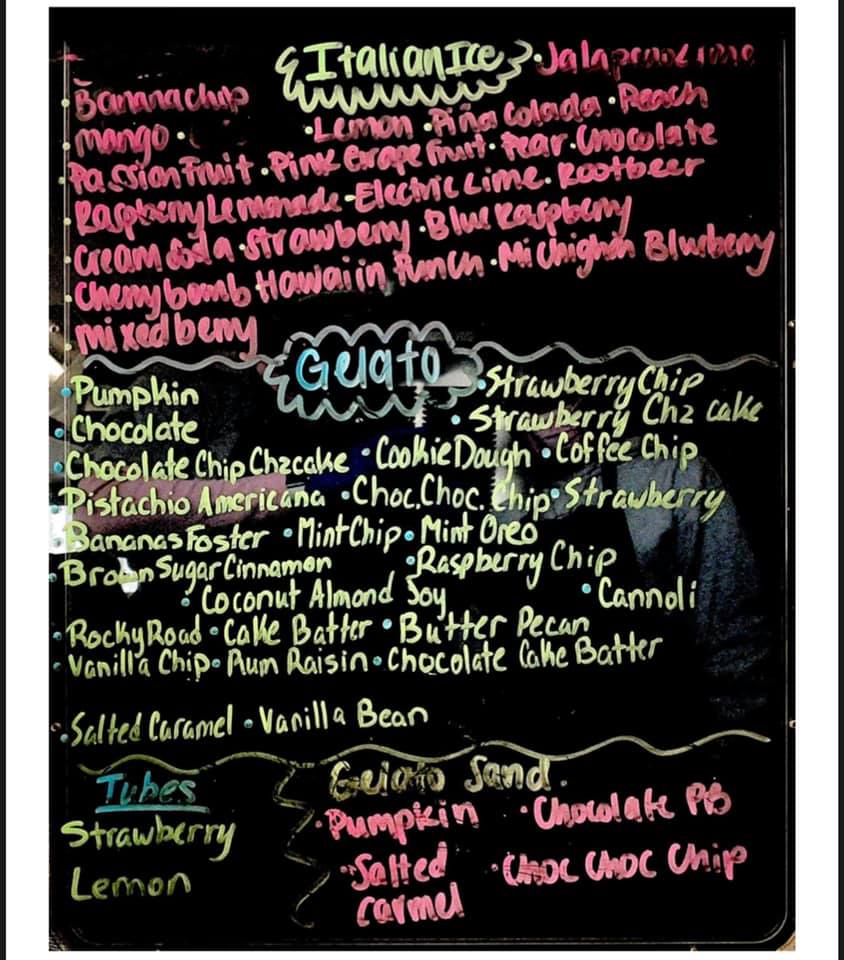 Italian Ice • Jalapenoe lime
• Bananachip
• mango • • Lemon • Piña Colada • Peach
• Passion Fruit • Pink Grape Fruit • Pear • Chocolate
• Raspberry Lemonade • Electric Lime • Rootbeer
• Cream Soda • Strawberry • Blue Raspberry
• Cherry bomb Hawaiin Punch • Michighan Blueberry
• mixed berry
Gelato
• Pumpkin • Strawberry Chip
• Chocolate • Strawberry Chz cake
• Chocolate Chip Chzcake • Cookie Dough • Coffee Chip
• Pistachio Americana • Choc. Choc. Chip • Strawberry
• Bananas Foster • Mint Chip • Mint Oreo
• Brown Sugar Cinnamon • Raspberry Chip
• Coconut Almond Soy • Cannoli
• Rocky Road • Cake Batter • Butter Pecan
• Vanilla Chip • Rum Raisin • Chocolate Cake Batter
• Salted Caramel • Vanilla Bean
Tubes
Strawberry
Lemon
Gelato Sand.
• Pumpkin • Chocolate PB
• Salted • Choc Choc Chip
Carmel